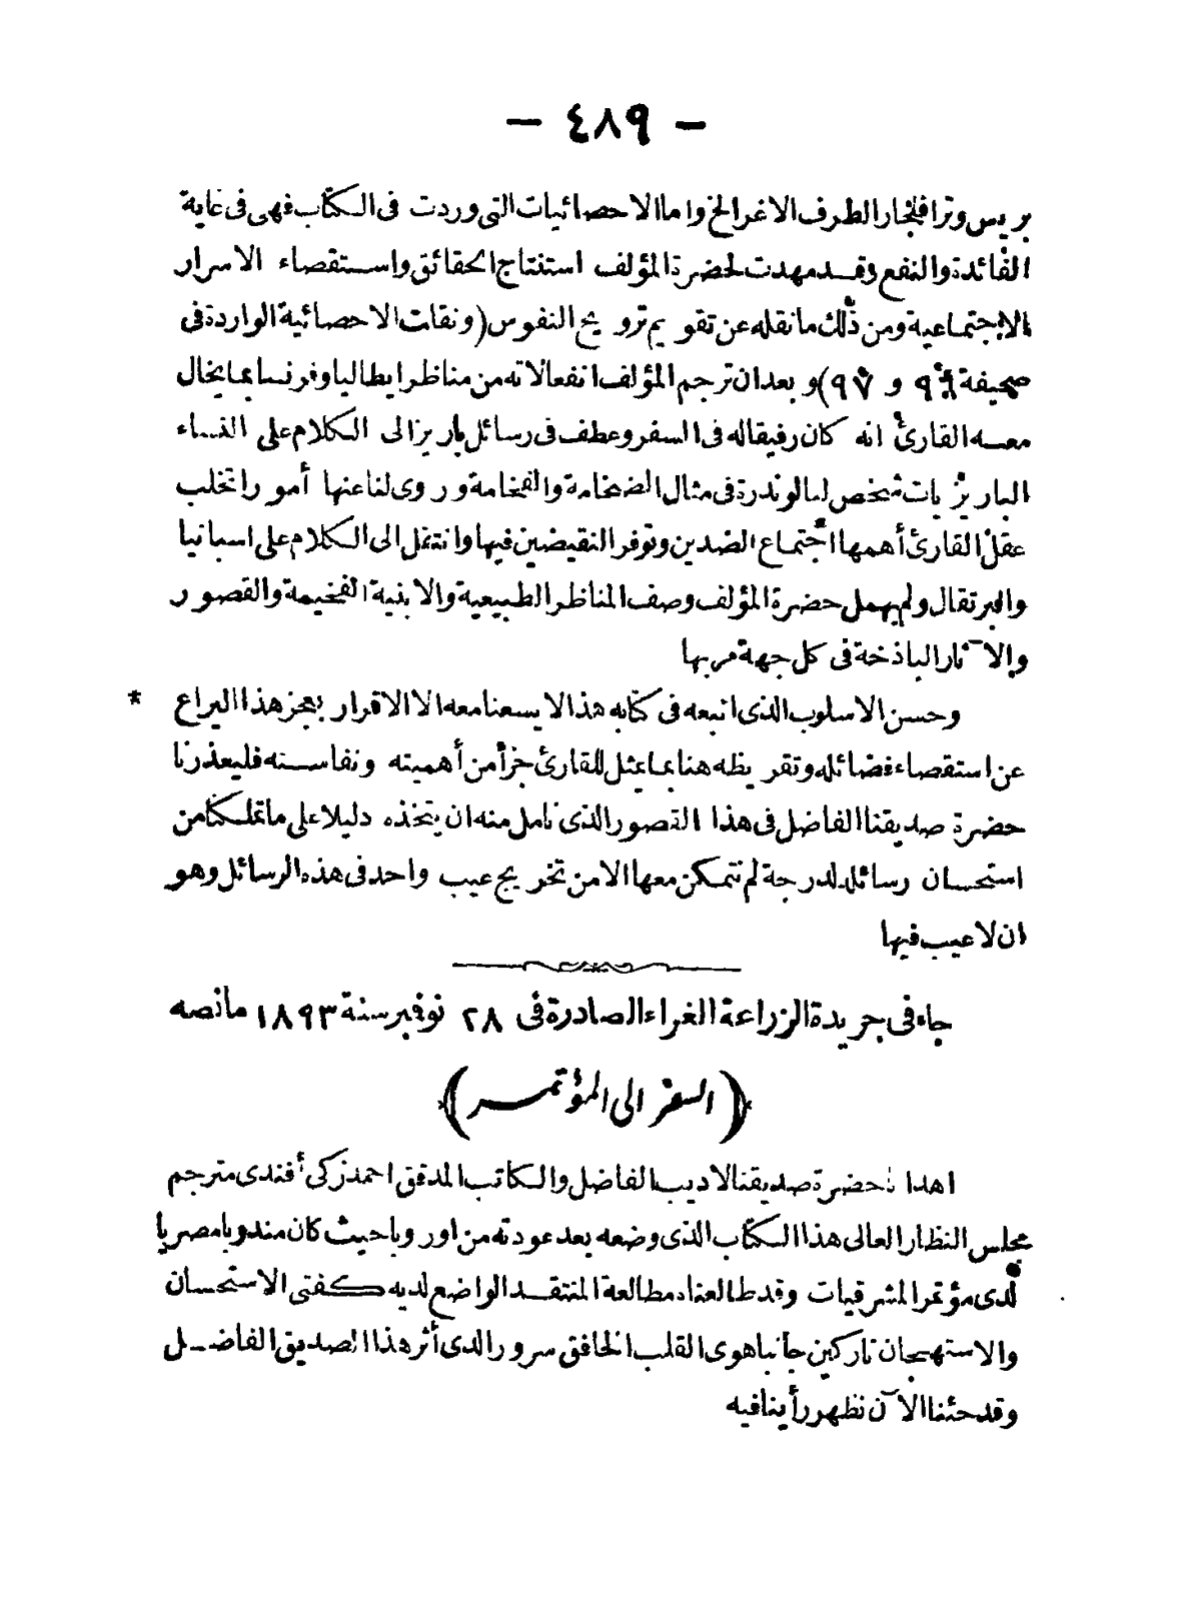 — ٤٨٩ —
بريس وترافلجار الطرف الاغر الخ واما الاحصائيات التى وردت فى الكتاب فهى فى غاية
الفائدة والنفع وقد مهدت لحضرة المؤلف استنتاج الحقائق واستقصاء الاسرار
الاجتماعية ومن ذلك مانقله عن تقويم ترويح النفوس (ونقات الاحصائية الواردة فى
صحيفة ٩٦ و ٩٧) وبعد ان ترجم المؤلف انفعالاته من مناظر ايطاليا وفرنسا بما يخال
معه القارئ انه كان رفيقا له فى السفر وعطف فى رسائل باريز الى الكلام على النساء
الباريزيات شخص لنا لوندرة فى مثال الضخامة والفخامة وروى لنا عنها أمورا تخلب
عقل القارئ أهمها اجتماع الضدين وتوفر النقيضين فيها وانتقل الى الكلام على اسبانيا
والبرتقال ولم يهمل حضرة المؤلف وصف المناظر الطبيعية والابنية الفخيمة والقصور
والآثار الباذخة فى كل جهة مر بها
وحسن الاسلوب الذى اتبعه فى كتابه هذا لايسعنا معه الا الاقرار بعجز هذا اليراع *
عن استقصاء فضائله وتقريظه هنا بما يمثل للقارئ جزأ من أهميته ونفاسته فليعذرنا
حضرة صديقنا الفاضل فى هذا القصور الذى نامل منه ان يتخذه دليلا على ماتملكنا من
استحسان رسائله لدرجة لم نتمكن معها الا من تخريج عيب واحد فى هذه الرسائل وهو
ان لا عيب فيها
جاء فى جريدة الزراعة الغراء الصادرة فى ٢٨ نوفمبر سنة ١٨٩٣ مانصه
﴿السفر الى المؤتمر﴾
اهدانا حضرة صديقنا الاديب الفاضل والكاتب المدقق احمد زكى أفندى مترجم
مجلس النظار العالى هذا الكتاب الذى وضعه بعد عودته من اوروبا حيث كان مندوبا مصريا
لدى مؤتمر المشرقيات وقد طالعناه مطالعة المنتقد الواضع لديه كفتى الاستحسان
والاستهجان تاركين جانبا هوى القلب الخافق سرورا لدى أثر هذا الصديق الفاضل
وقد حئنا الآن نظهر رأينا فيه